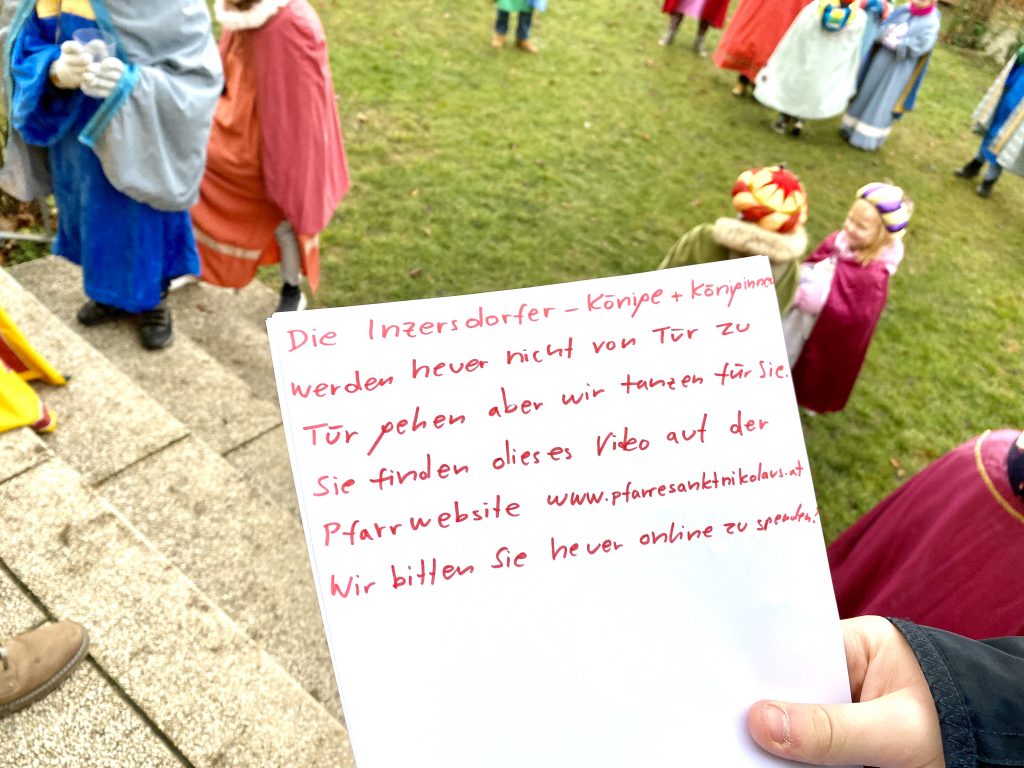 Die Inzersdorfer - Könige + Königinnen
werden heuer nicht von Tür zu
Tür gehen aber wir tanzen für Sie.
Sie finden dieses Video auf der
Pfarrwebsite www.pfarresanktnikolaus.at
Wir bitten Sie heuer online zu spenden!